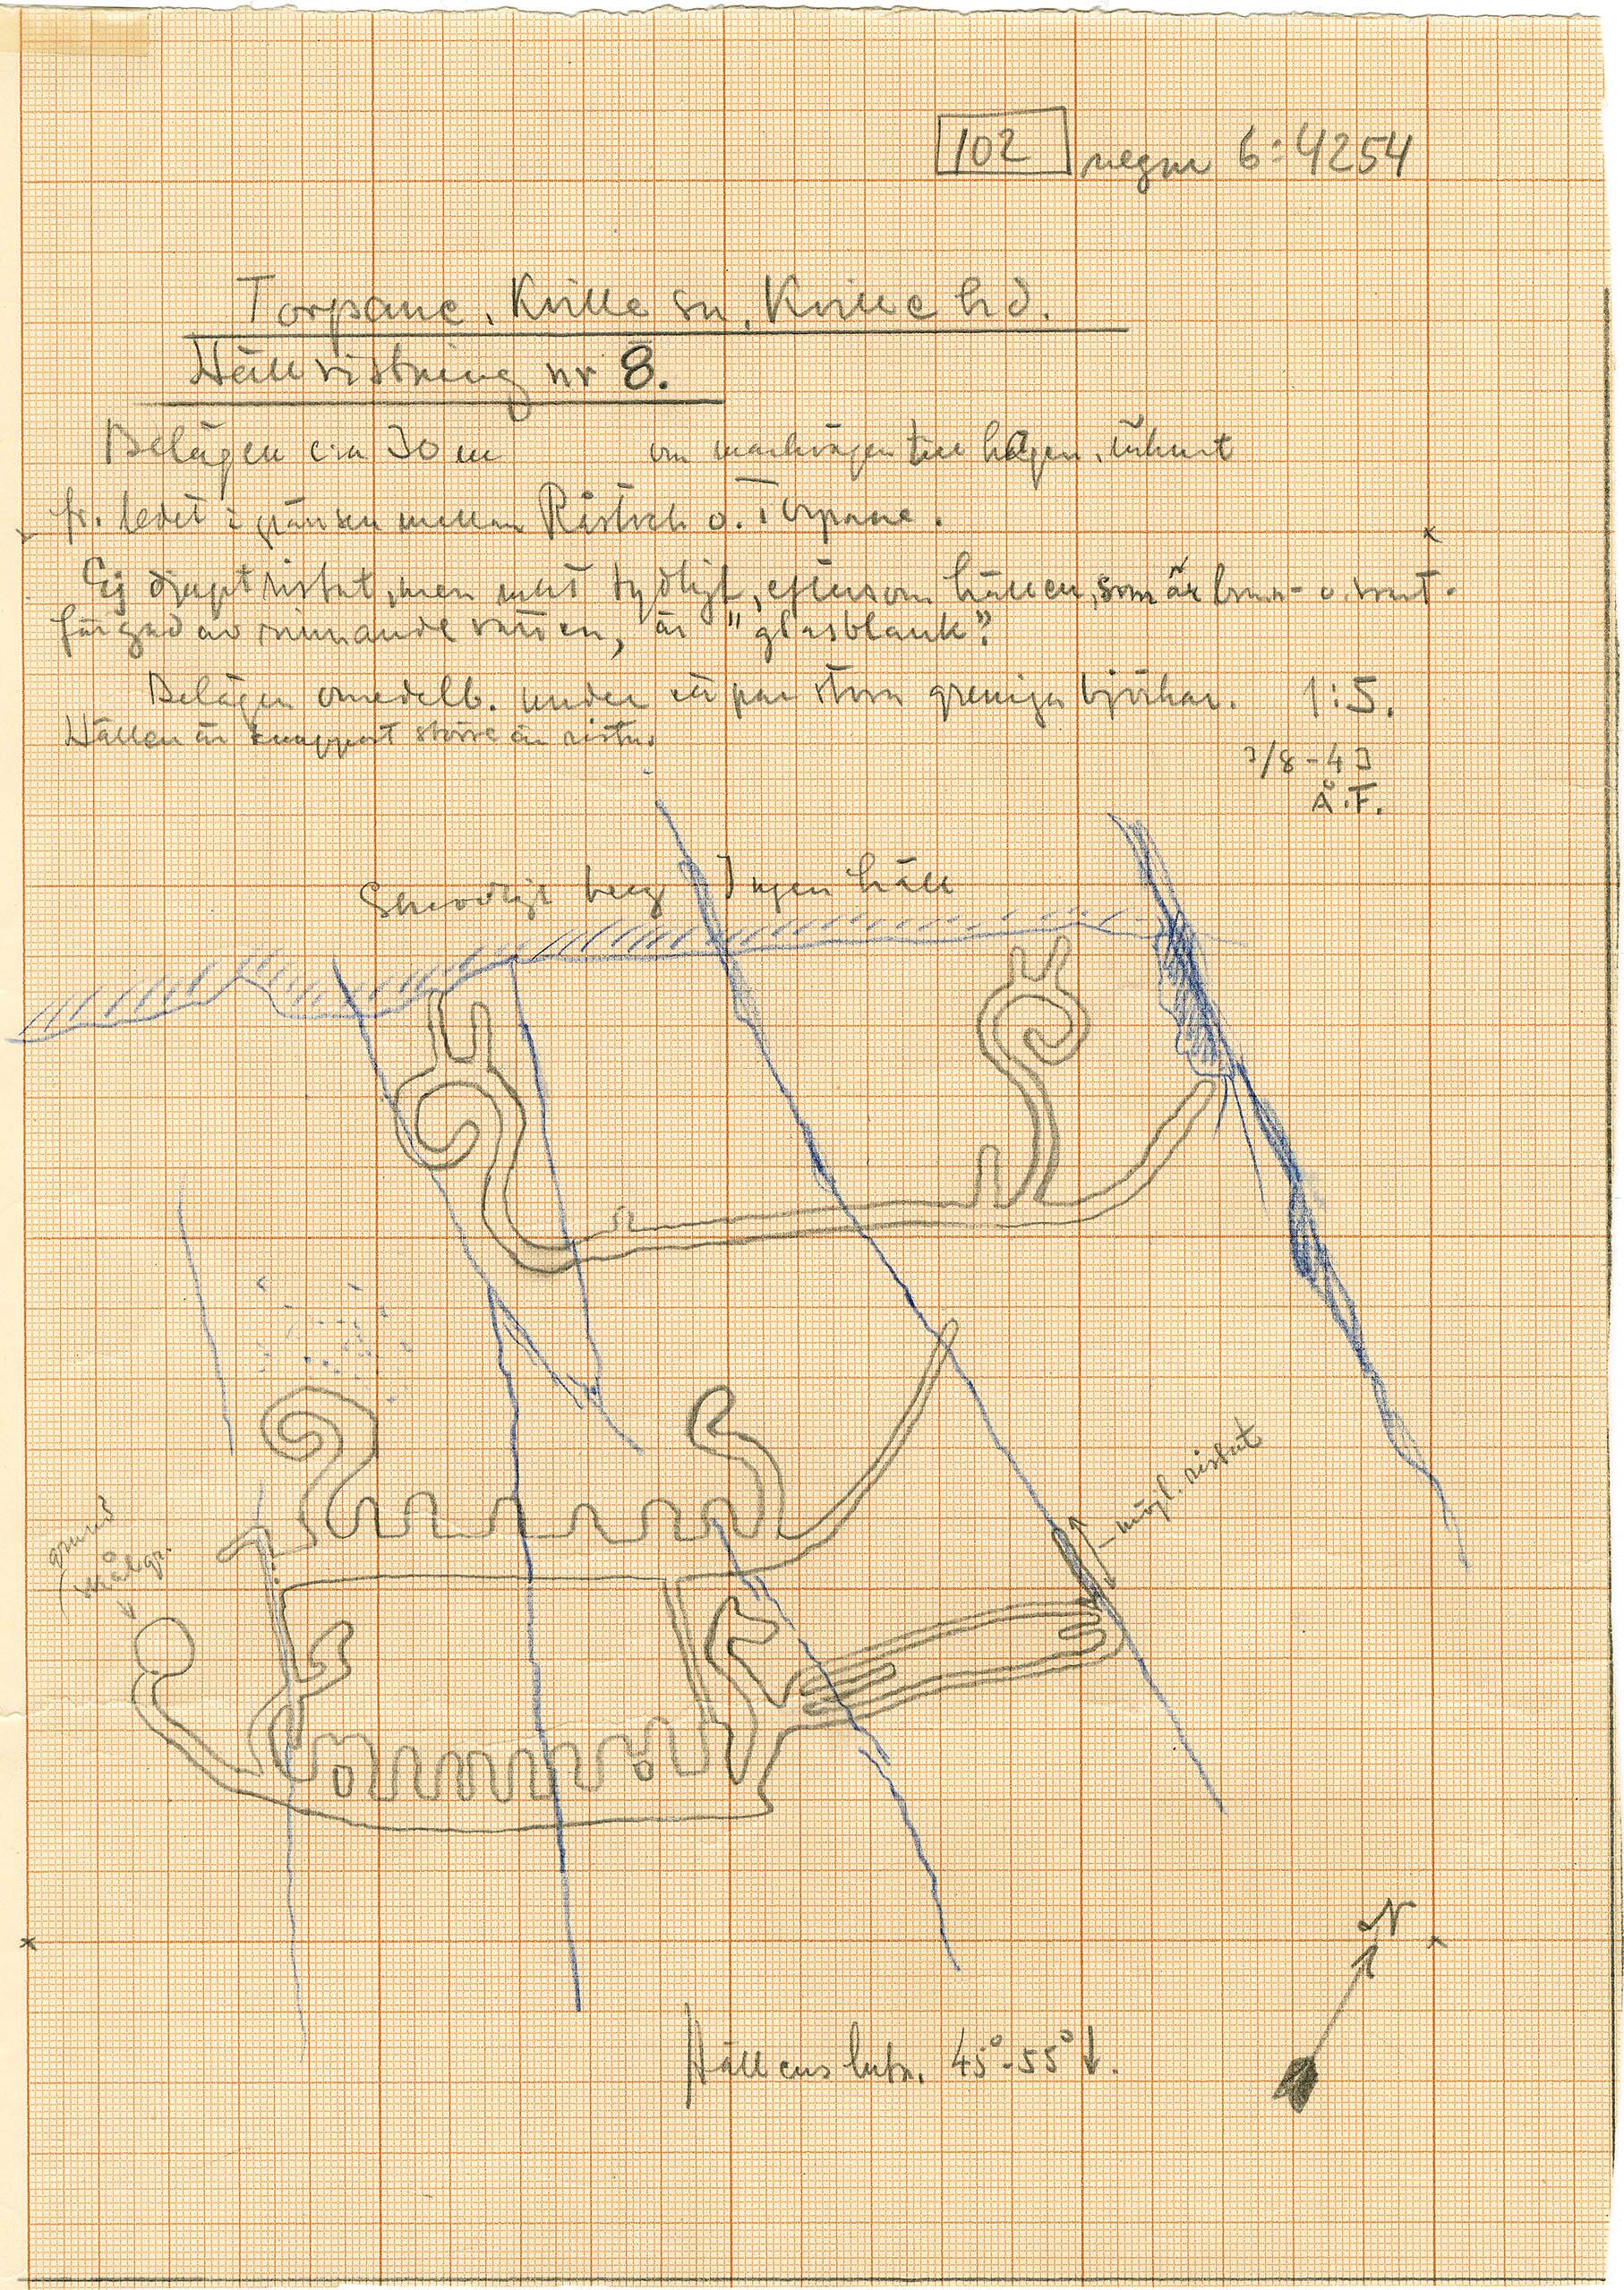 102 negnr 6:4254
Torpane, Kville sn, Kville hd.
Hällristning nr 8.
Belägen c:a 30 m om markvägen till hagen, inhunt
fr. ledet i gränsen mellan Råstock o. Torpane.
Ej djupt ristat, men mkt tydligt, eftersom hällen, som är brun- o. svart-
färgad av rinnande vatten, är "glasblank".
Belägen omedelb. under ett par stora greniga björkar. 1:5.
Hällen är knappast större än ristn.
3/8-43
Å.F.
Skrovligt berg Ingen häll
möjl. ristat
grund
skålgr.
N
Hällens lutn. 45°-55° ↓.